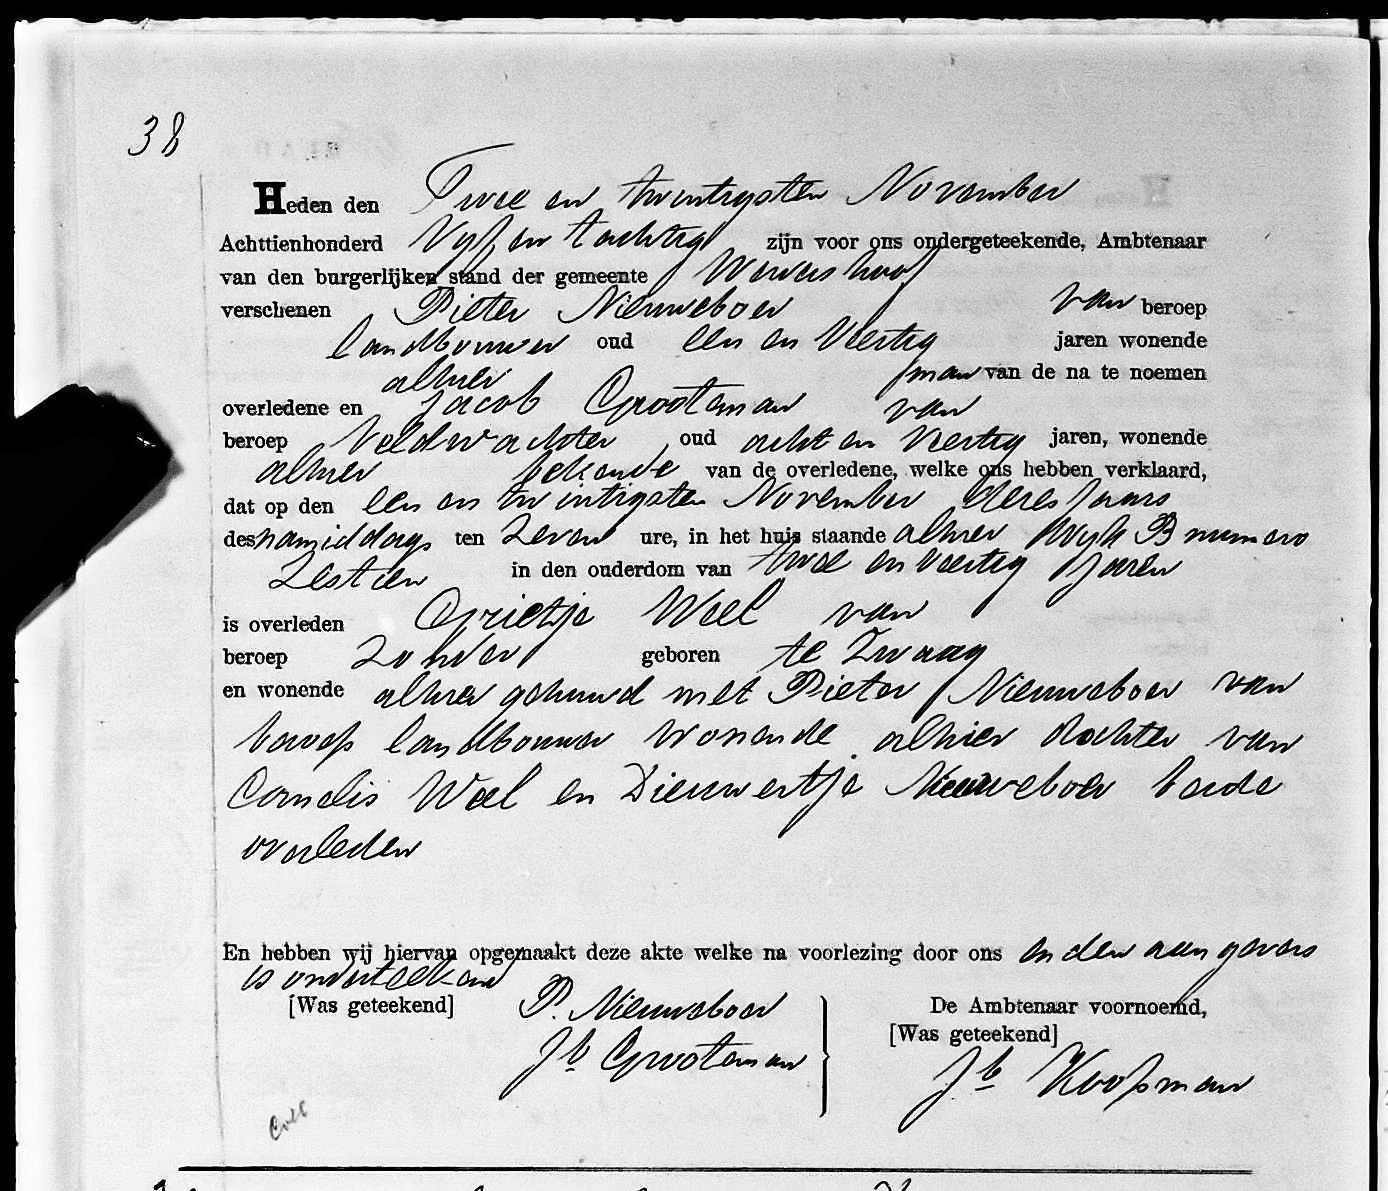 38
Heden den Twee en twintigsten November
Achttienhonderd Vijf en tachtig zijn voor ons ondergeteekende, Ambtenaar
van den burgerlijken stand der gemeente Wervershoof
verschenen Pieter Nieuweboer van beroep
landbouwer oud een en Veertig jaren wonende
alhier man van de na te noemen
overledene en Jacob Grooteman van
beroep Veldwachter oud acht en Veertig jaren, wonende
alhier bekende van de overledene, welke ons hebben verklaard,
dat op den een en twintigsten November dezes jaars
des namiddags ten Zeven ure, in het huis staande alhier Wijk B numero
Zestien in den ouderdom van twee en Veertig Jaren
is overleden Grietje Weel van
beroep Zonder geboren te Zwaag
en wonende alhier gehuwd met Pieter Nieuweboer van
beroep landbouwer wonende alhier dochter van
Cornelis Weel en Dieuwertje Nieuweboer beide
overleden
En hebben wij hiervan opgemaakt deze akte welke na voorlezing door ons en den aangevers
is onderteekend
[Was geteekend] P. Nieuweboer De Ambtenaar voornoemd,
[Was geteekend]
Jb Grooteman Jb Koopman
Coll